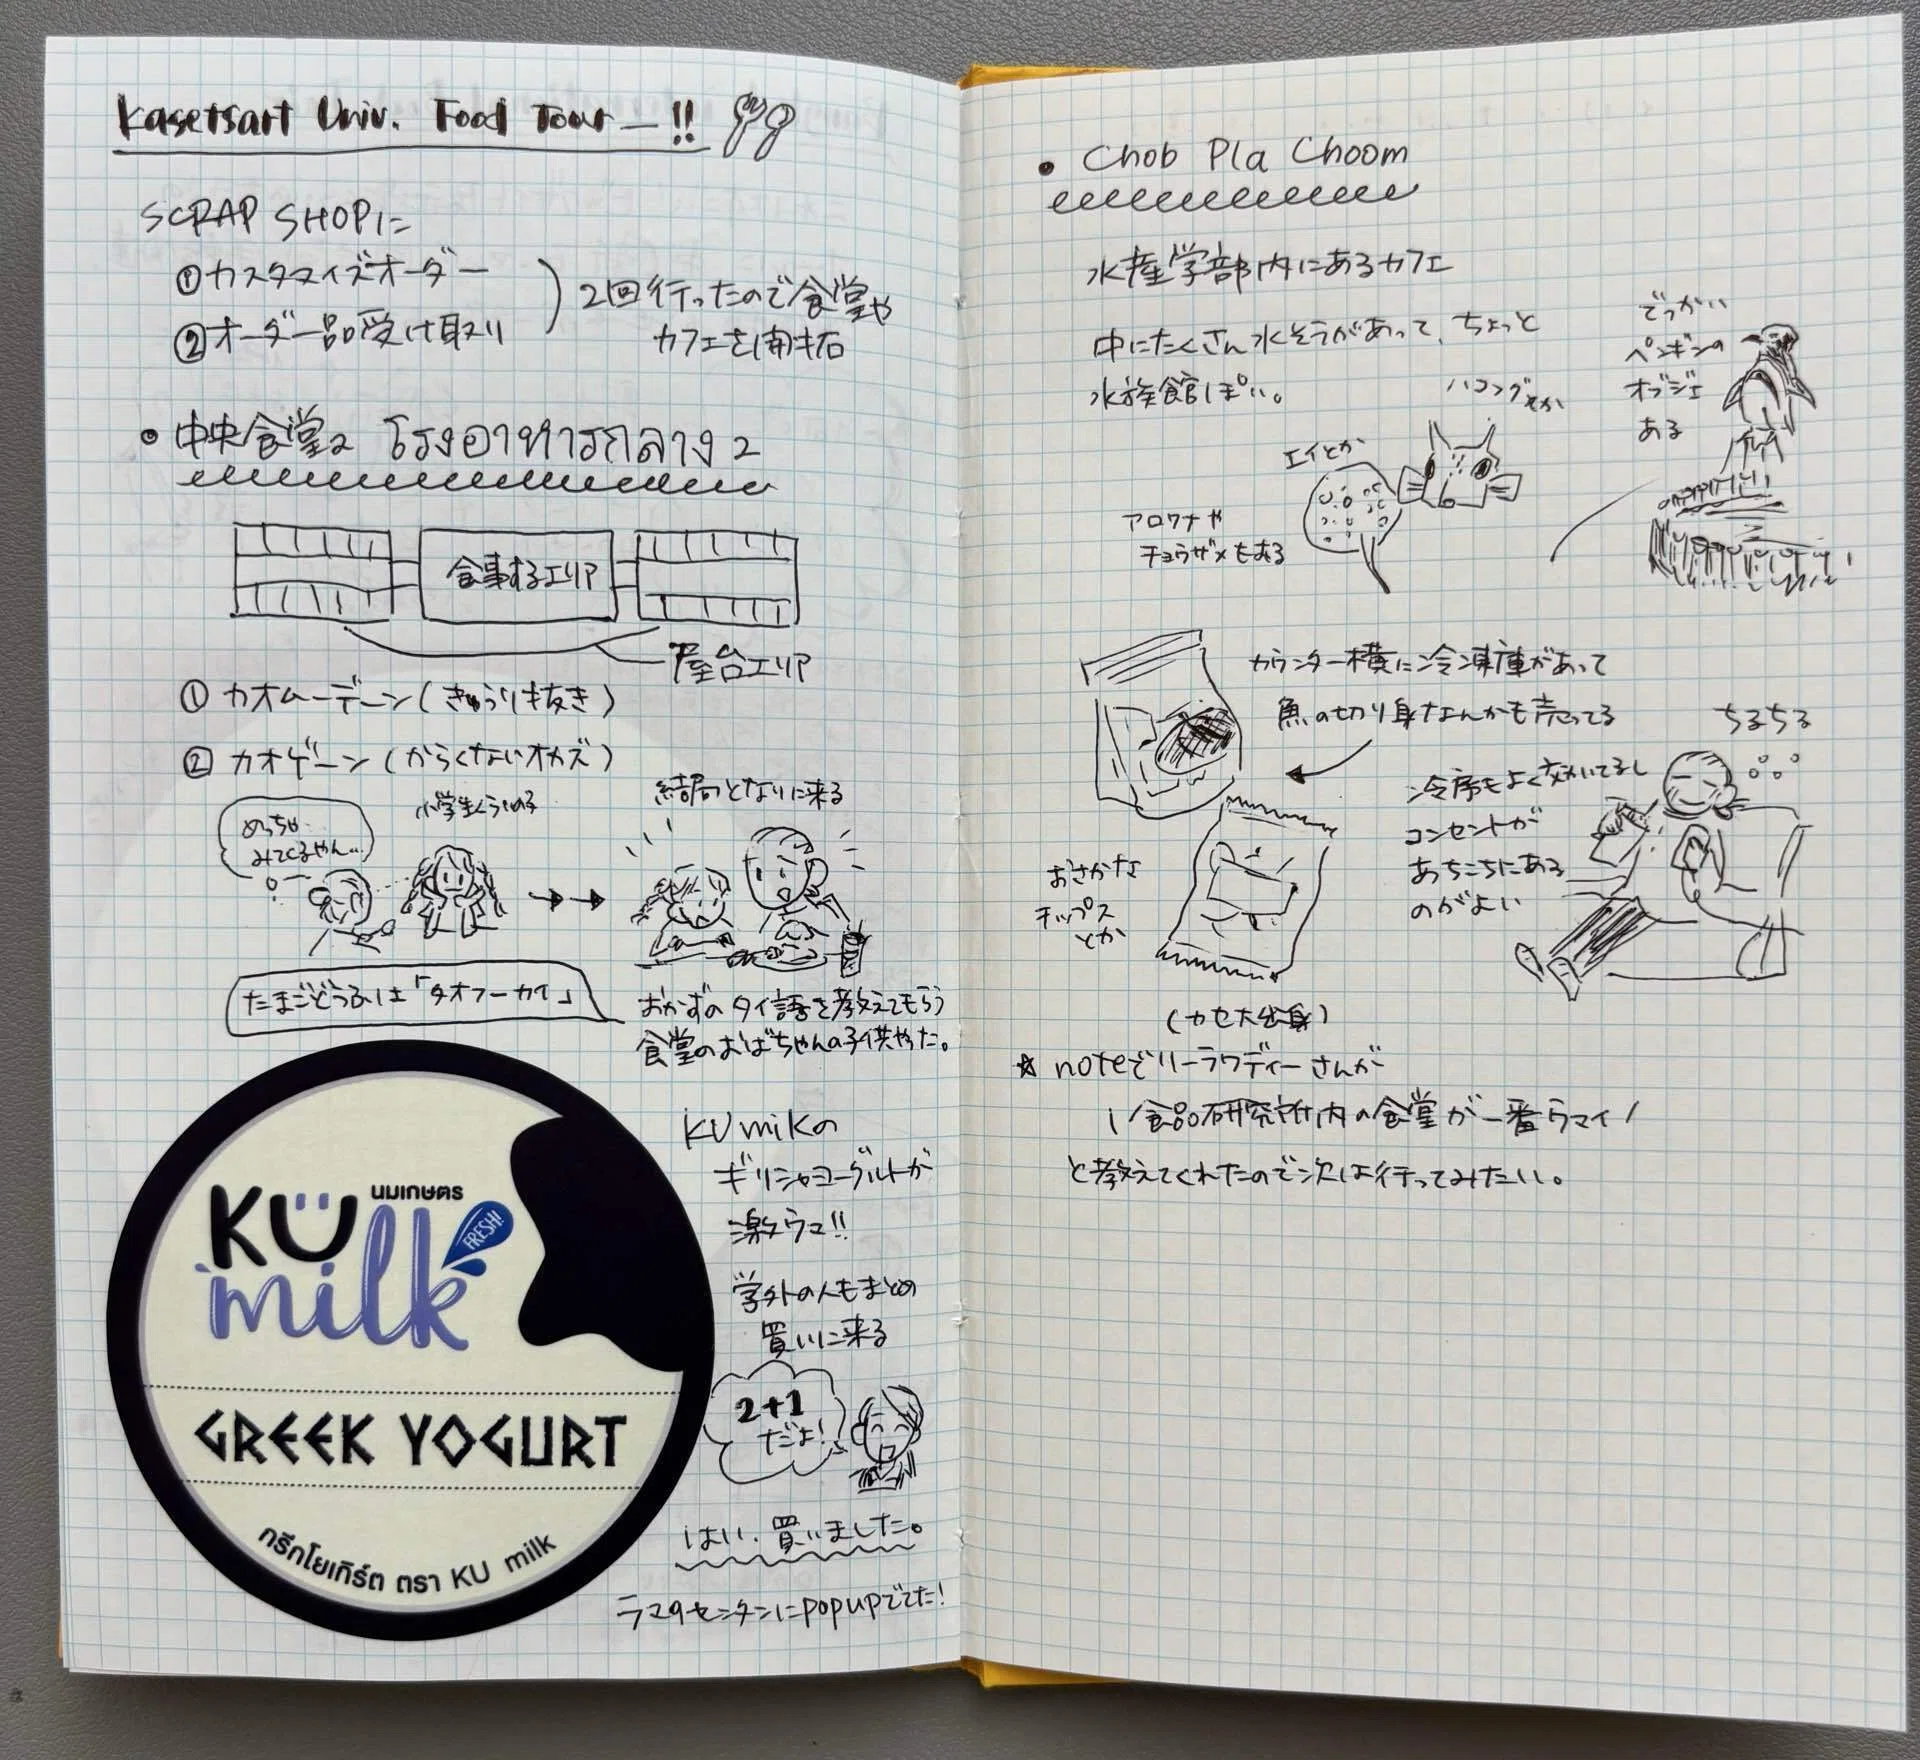 Kasetsart Univ. Food Tour—!!
SCRAP SHOPに
①カスタマイズオーダー
②オーダー品受け取り
2回行ったので食堂や
カフェを開拓
・中央食堂2 โรงอาหารกลาง 2
食事するエリア
屋台エリア
① カオムーデーン(きゅうり抜き)
② カオゲーン(からくないオカズ)
めっちゃ
みてくるやん…
小学生くらいの子
結局となりに来る
たまごどうふは「タオフーカイ」
おかずのタイ語を教えてもらう
食堂のおばちゃんの子供やった。
KU milk
นมเกษตร
FRESH!
GREEK YOGURT
กรีกโยเกิร์ต ตรา KU milk
KU milkの
ギリシャヨーグルトが
激ウマ!!
学外の人もまとめ
買いに来る
2+1
だよ!
はい、買いました。
ラマ9センタンにpopupでてた!
・Chob Pla Choom
水産学部内にあるカフェ
中にたくさん水そうがあって、ちょっと
水族館ぽい。
でっかい
ペンギンの
オブジェ
ある
ハコフグとか
エイとか
アロワナや
チョウザメもおる
カウンター横に冷凍庫があって
魚の切り身なんかも売ってる
ちるちる
冷房もよく効いてるし
コンセントが
あちこちにある
のがよい
おさかな
チップス
とか
(カセ大出身)
☆ noteでリーラワディーさんが
\食品研究所内の食堂が一番ウマイ/
と教えてくれたので次は行ってみたい。